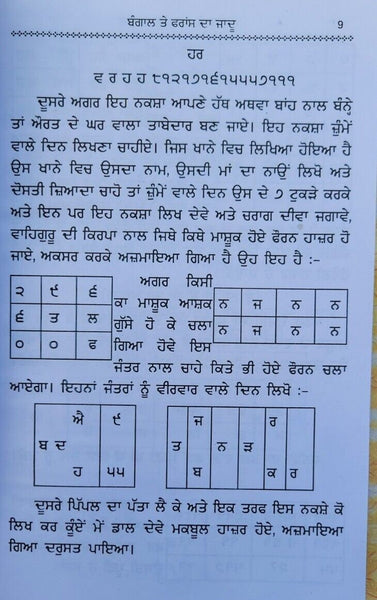 ਬੰਗਾਲ ਤੇ ਫਰਾਂਸ ਦਾ ਜਾਦੂ 9
ਹਰ
ਵ ਰ ਹ ਹ ੮੧੨੧੭੧੬੧੫੫੫੭੧੧੧
ਦੂਸਰੇ ਅਗਰ ਇਹ ਨਕਸ਼ਾ ਆਪਣੇ ਹੱਥ ਅਥਵਾ ਬਾਂਹ ਨਾਲ ਬੰਨ੍ਹੇ
ਤਾਂ ਔਰਤ ਦੇ ਘਰ ਵਾਲਾ ਤਾਬੇਦਾਰ ਬਣ ਜਾਏ। ਇਹ ਨਕਸ਼ਾ ਜ਼ੁੰਮੇਂ
ਵਾਲੇ ਦਿਨ ਲਿਖਣਾ ਚਾਹੀਏ। ਜਿਸ ਖਾਨੇ ਵਿਚ ਲਿਖਿਆ ਹੋਇਆ ਹੈ
ਉਸ ਖਾਨੇ ਵਿਚ ਉਸਦਾ ਨਾਮ, ਉਸਦੀ ਮਾਂ ਦਾ ਨਾਉਂ ਲਿਖੋ ਅਤੇ
ਦੋਸਤੀ ਜ਼ਿਆਦਾ ਚਾਹੋ ਤਾਂ ਜ਼ੁੰਮੇਂ ਵਾਲੇ ਦਿਨ ਉਸ ਦੇ ੭ ਟੁਕੜੇ ਕਰਕੇ
ਅਤੇ ਇਨ ਪਰ ਇਹ ਨਕਸ਼ਾ ਲਿਖ ਦੇਵੇ ਅਤੇ ਚਰਾਗ ਦੀਵਾ ਜਗਾਵੇ,
ਵਾਹਿਗੁਰੂ ਦੀ ਕਿਰਪਾ ਨਾਲ ਜਿਥੇ ਕਿਥੇ ਮਾਸ਼ੂਕ ਹੋਏ ਫੌਰਨ ਹਾਜ਼ਰ ਹੋ
ਜਾਏ, ਅਕਸਰ ਕਰਕੇ ਅਜ਼ਮਾਇਆ ਗਿਆ ਹੈ ਉਹ ਇਹ ਹੈ :-
ਅਗਰ ਕਿਸੀ
੨ ੯ ੬ ਕਾ ਮਾਸ਼ੂਕ ਆਸ਼ਕ ਨ ਜ ਨ ਨ
੬ ਤ ਲ ਗੁੱਸੇ ਹੋ ਕੇ ਚਲਾ ਨ ਜ ਨ ਨ
੦ ੦ ਫ ਗਿਆ ਹੋਵੇ ਇਸ
ਜੰਤਰ ਨਾਲ ਚਾਹੇ ਕਿਤੇ ਭੀ ਹੋਏ ਫੌਰਨ ਚਲਾ
ਆਏਗਾ। ਇਹਨਾਂ ਜੰਤਰਾਂ ਨੂੰ ਵੀਰਵਾਰ ਵਾਲੇ ਦਿਨ ਲਿਖੋ :-
ਐ ੯ ਜ ਰ
ਬ ਦ ਤ ਨ ੜ
ਹ ੫੫ ਬ ਕ ਰ
ਦੂਸਰੇ ਪਿੱਪਲ ਦਾ ਪੱਤਾ ਲੈ ਕੇ ਅਤੇ ਇਕ ਤਰਫ ਇਸ ਨਕਸ਼ੇ ਕੋ
ਲਿਖ ਕਰ ਕੂੰਦੇਂ ਮੇਂ ਡਾਲ ਦੇਵੇ ਮਕਬੂਲ ਹਾਜ਼ਰ ਹੋਏ, ਅਜ਼ਮਾਇਆ
ਗਿਆ ਦਰੁਸਤ ਪਾਇਆ।